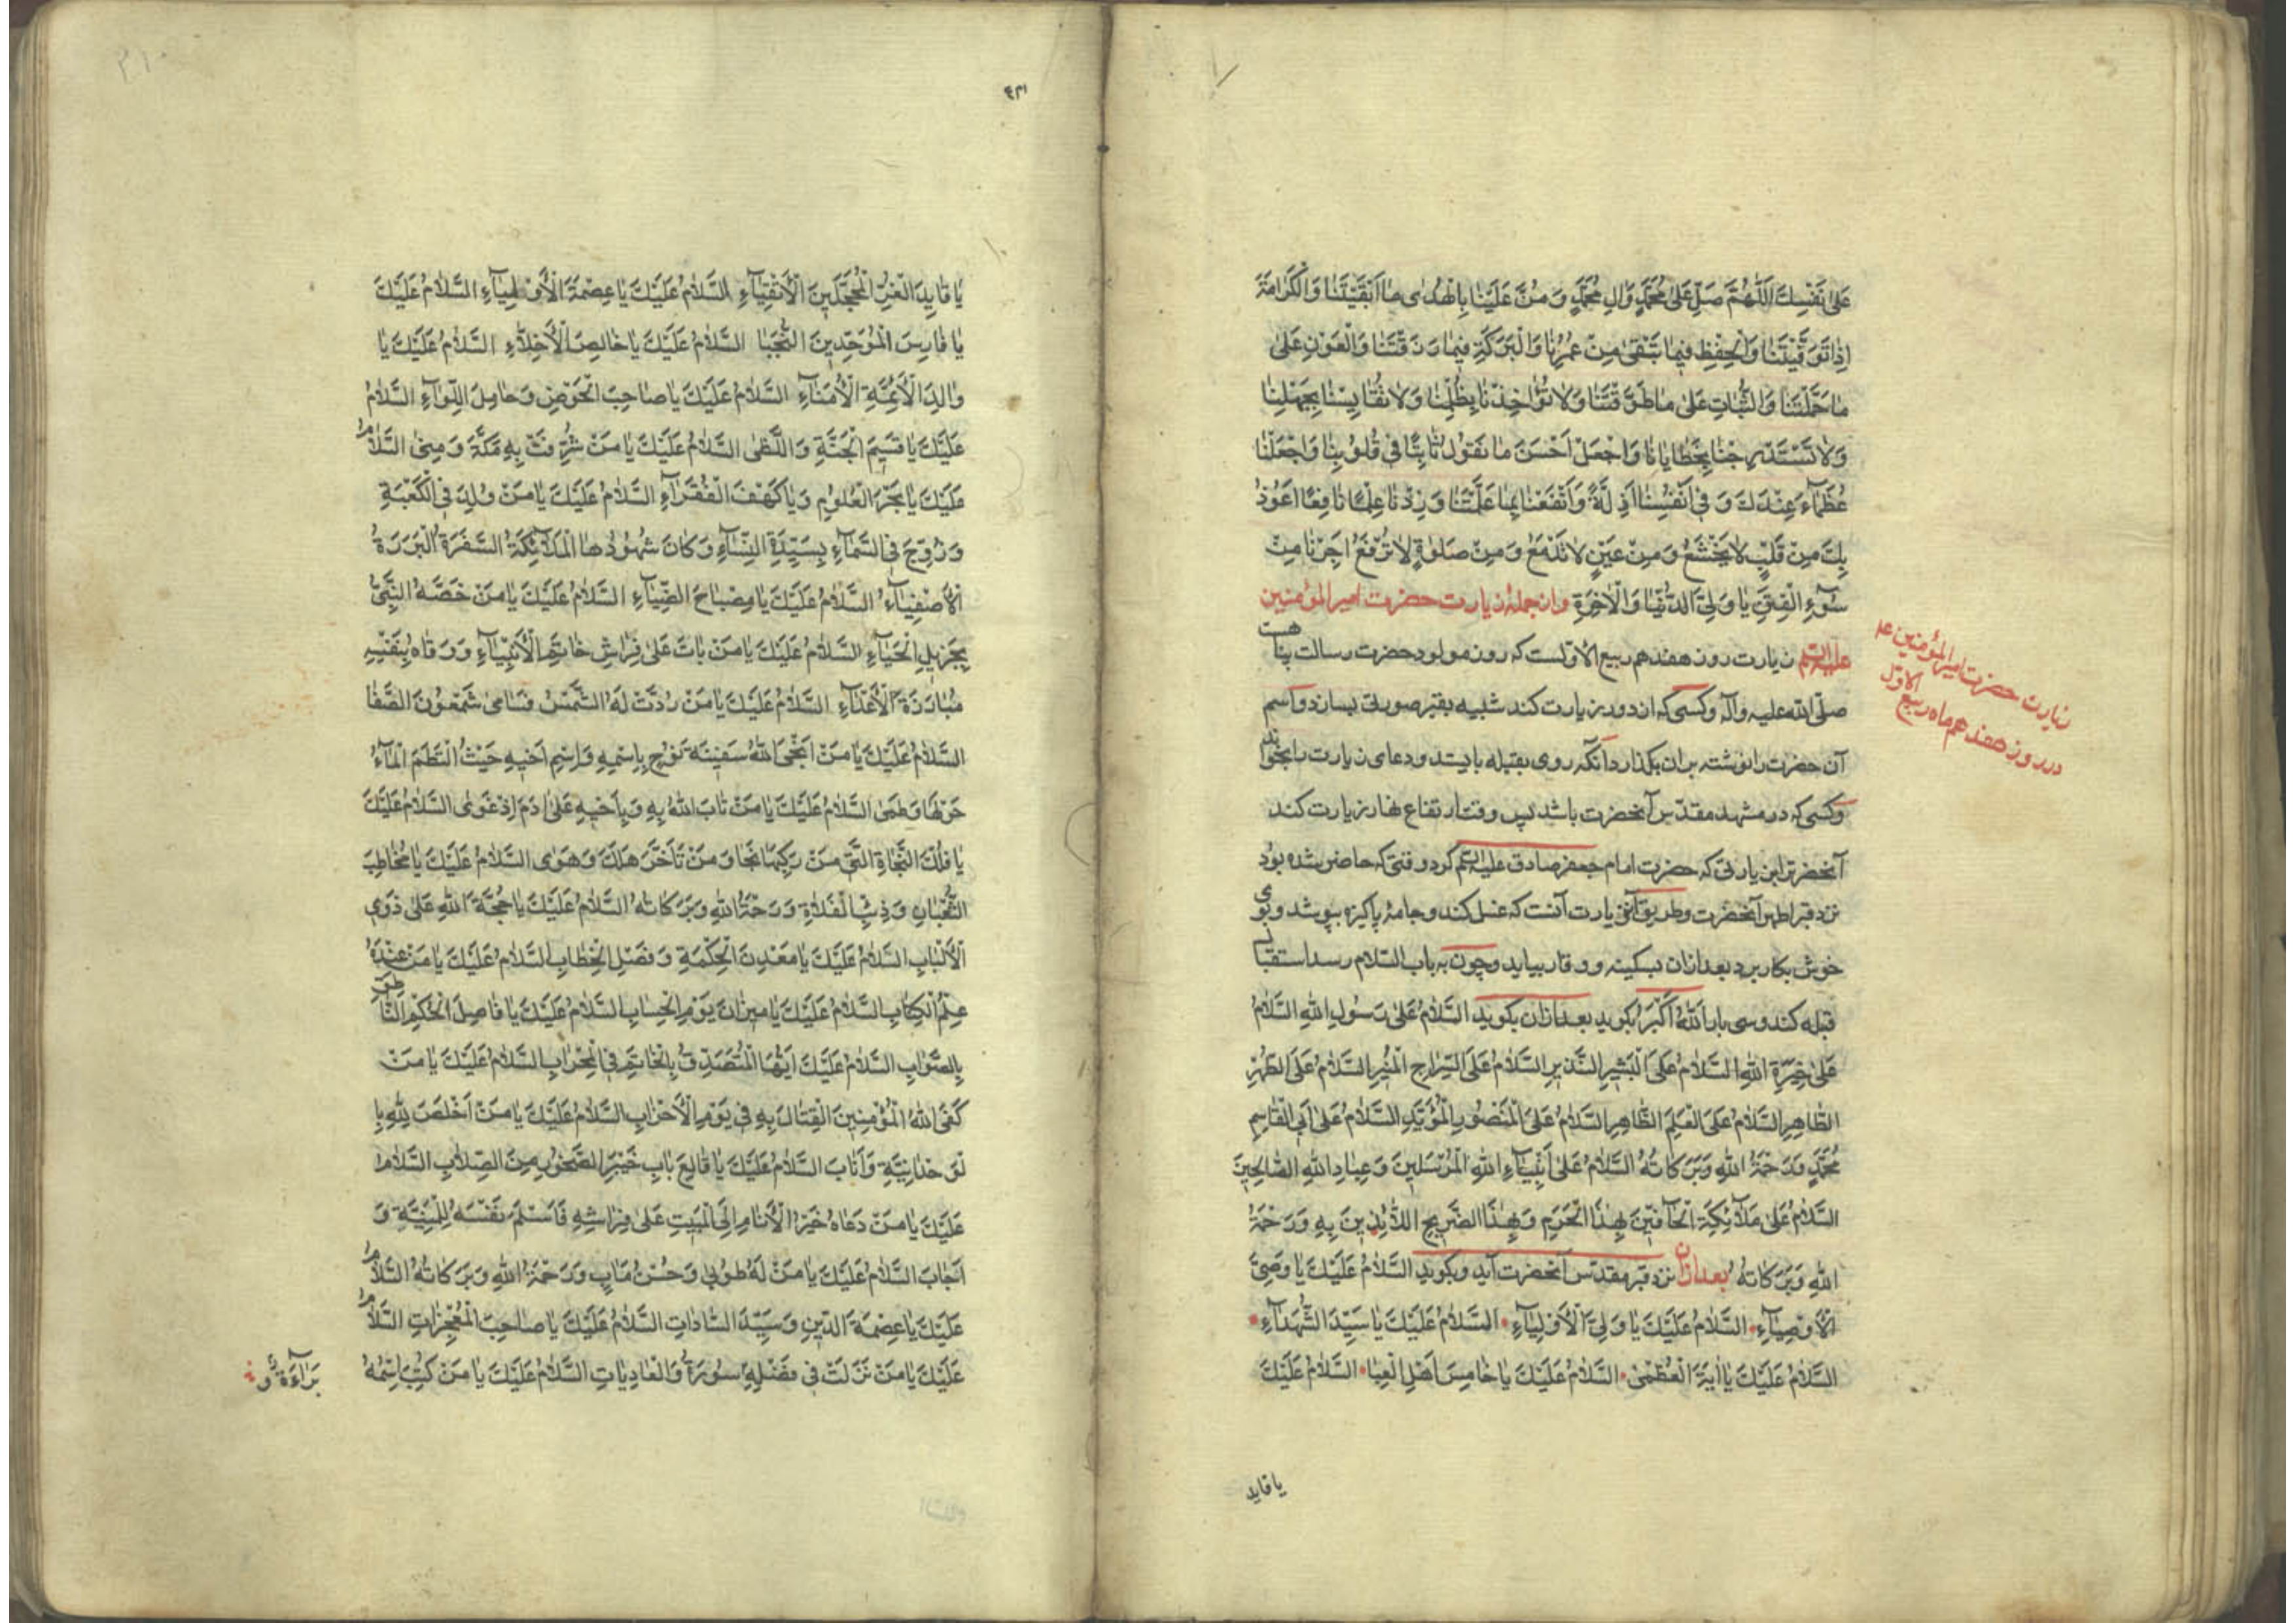 عَلیٰ نَفْسِكَ اَللّٰهُمَّ صَلِّ عَلیٰ مُحَمَّدٍ وَاٰلِ مُحَمَّدٍ وَ مُنَّ عَلَيْنَا بِالْهُدٰى مَا اَبْقَيْتَنَا وَالْكَرَامَةِ
اِذَا تَوَفَّيْتَنَا وَالْحِفْظِ فِيمَا بَقِىَ مِنْ عُمْرِنَا وَالْبَرَكَةِ فِيمَا رَزَقْتَنَا وَالْعَوْنِ عَلیٰ
مَا حَمَّلْتَنَا وَالثَّبَاتِ عَلیٰ مَا طَوَّقْتَنَا وَلَا تُؤٰاخِذْنَا بِظُلْمِنَا وَلَا تُقَايِسْنَا بِجَهْلِنَا
وَلَا تَسْتَدْرِجْنَا بِخَطَايَانَا وَاجْعَلْ اَحْسَنَ مَا نَقُولُ ثَابِتًا فِى قُلُوبِنَا وَاجْعَلْنَا
عُظَمَاءَ عِنْدَكَ وَ فِى اَنْفُسِنَا اَذِلَّةً وَانْفَعْنَا بِمَا عَلَّمْتَنَا وَ زِدْنَا عِلْمًا نَافِعًا اَعُوذُ
بِكَ مِنْ قَلْبٍ لَا يَخْشَعُ وَ مِنْ عَيْنٍ لَا تَدْمَعُ وَ مِنْ صَلٰوةٍ لَا تُرْفَعُ اَجِرْنَا مِنْ
سُوٓءِ الْفِتَنِ يَا وَلِىَّ الدُّنْيَا وَالْاٰخِرَةِ وازجمله زیارت حضرت امیر المؤمنین
علیه السلم زیارت روز هفدهم ربیع الاولست که روز مولود حضرت رسالت پناهست
زیارت حضرت امیرالمؤمنین ع
در روز هفدهم ماه ربیع الاوّل
صلی الله علیه وآله وکسی که از دور زیارت کند شبیه بقبر صورتی بسازد واسم
آن حضرت را نوشته بران بگذارد آنکه روی بقبله بایستد ودعای زیارت را بخواند
وکسی که در مشهد مقدّس آنحضرت باشد پس وقت ارتفاع نهار زیارت کند
آنحضرترا بزیارتی که حضرت امام جعفر صادق علیه السلم کرد وقتی که حاضر شده بود
نزد قبر اطهر آنحضرت وطریق آن زیارت آنست که غسل کند وجامهٔ پاکیزه بپوشد وبوی
خوش بکار برد بعد ازان بسکینه ووقار بیاید وچون به باب السّلام رسد استقبال
قبله کند وسی بار اَللّٰهُ اَكْبَرُ بگوید بعد ازان بگوید اَلسَّلَامُ عَلیٰ رَسُولِ اللهِ اَلسَّلَامُ
عَلیٰ خِيَرَةِ اللهِ اَلسَّلَامُ عَلَى الْبَشِيرِ النَّذِيرِ اَلسَّلَامُ عَلَى السِّرَاجِ الْمُنِيرِ اَلسَّلَامُ عَلَى الطُّهْرِ
الطَّاهِرِ اَلسَّلَامُ عَلَى الْعَلَمِ الظَّاهِرِ اَلسَّلَامُ عَلَى الْمَنْصُورِ الْمُؤَيَّدِ اَلسَّلَامُ عَلیٰ اَبِى الْقَاسِمِ
مُحَمَّدٍ وَرَحْمَةُ اللهِ وَبَرَكَاتُهُ اَلسَّلَامُ عَلیٰ اَنْبِيَاءِ اللهِ الْمُرْسَلِينَ وَعِبَادِ اللهِ الصَّالِحِينَ
اَلسَّلَامُ عَلیٰ مَلَآئِكَةِ الْحَافِّينَ بِهٰذَا الْحَرَمِ وَ بِهٰذَا الضَّرِيحِ اللَّائِذِينَ بِهِ وَرَحْمَةُ
اللهِ وَبَرَكَاتُهُ بعد ازان نزد قبر مقدّس آنحضرت آید وبگوید اَلسَّلَامُ عَلَيْكَ يَا وَصِىَّ
الْاَوْصِيَآءِ اَلسَّلَامُ عَلَيْكَ يَا وَلِىَّ الْاَوْلِيَآءِ اَلسَّلَامُ عَلَيْكَ يَا سَيِّدَ الشُّهَدَآءِ
اَلسَّلَامُ عَلَيْكَ يَا اٰيَةَ الْعُظْمٰى اَلسَّلَامُ عَلَيْكَ يَا خَامِسَ اَهْلِ الْعَبَا اَلسَّلَامُ عَلَيْكَ
یا قاید
يَا قَايِدَ الْغُرِّ الْمُحَجَّلِينَ الْاَتْقِيَآءِ اَلسَّلَامُ عَلَيْكَ يَا عِصْمَةَ الْاَوْلِيَآءِ اَلسَّلَامُ عَلَيْكَ
يَا فَارِسَ الْمُوَحِّدِينَ النُّجَبَا اَلسَّلَامُ عَلَيْكَ يَا خَالِصَ الْاَخِلَّاءِ اَلسَّلَامُ عَلَيْكَ يَا
وَالِدَ الْاَئِمَّةِ الْاُمَنَآءِ اَلسَّلَامُ عَلَيْكَ يَا صَاحِبَ الْحَوْضِ وَحَامِلَ اللِّوَآءِ اَلسَّلَامُ
عَلَيْكَ يَا قَسِيمَ الْجَنَّةِ وَ اللَّظٰى اَلسَّلَامُ عَلَيْكَ يَا مَنْ شُرِّفَتْ بِهِ مَكَّةُ وَ مِنٰى اَلسَّلَامُ
عَلَيْكَ يَا بَحْرَ الْعُلُومِ وَيَا كَهْفَ الْفُقَرَآءِ اَلسَّلَامُ عَلَيْكَ يَا مَنْ وُلِدَ فِى الْكَعْبَةِ
وَ زُوِّجَ فِى السَّمَآءِ بِسَيِّدَةِ النِّسَآءِ وَكَانَ شُهُودُهَا الْمَلَآئِكَةُ السَّفَرَةُ الْبَرَرَةُ
الْاَصْفِيَآءُ اَلسَّلَامُ عَلَيْكَ يَا مِصْبَاحَ الضِّيَآءِ اَلسَّلَامُ عَلَيْكَ يَا مَنْ خَصَّهُ النَّبِىُّ
بِجَزِيلِ الْحَيَآءِ اَلسَّلَامُ عَلَيْكَ يَا مَنْ بَاتَ عَلیٰ فِرَاشِ خَاتَمِ الْاَنْبِيَآءِ وَ وَقَاهُ بِنَفْسِهِ
مُبَارَزَةَ الْاَعْدَآءِ اَلسَّلَامُ عَلَيْكَ يَا مَنْ رُدَّتْ لَهُ الشَّمْسُ فَسَامٰى شَمْعُونَ الصَّفَا
اَلسَّلَامُ عَلَيْكَ يَا مَنْ اَنْجَى اللهُ سَفِينَةَ نُوحٍ بِاسْمِهِ وَاسْمِ اَخِيهِ حَيْثُ الْتَطَمَ الْمَآءُ
حَوْلَهَا وَطَمٰى اَلسَّلَامُ عَلَيْكَ يَا مَنْ تَابَ اللهُ بِهِ وَبِاَخِيهِ عَلیٰ اٰدَمَ اِذْ غَوٰى اَلسَّلَامُ عَلَيْكَ
يَا فُلْكَ النَّجَاةِ الَّتِى مَنْ رَكِبَهَا نَجَا وَمَنْ تَاَخَّرَ هَلَكَ وَ هَوٰى اَلسَّلَامُ عَلَيْكَ يَا مُخَاطِبَ
الثُّعْبَانِ وَذِئْبِ الْفَلَاةِ وَ رَحْمَةُ اللهِ وَبَرَكَاتُهُ اَلسَّلَامُ عَلَيْكَ يَا حُجَّةَ اللهِ عَلیٰ ذَوِى
الْاَلْبَابِ اَلسَّلَامُ عَلَيْكَ يَا مَعْدِنَ الْحِكْمَةِ وَ فَصْلَ الْخِطَابِ اَلسَّلَامُ عَلَيْكَ يَا مَنْ عِنْدَهُ
عِلْمُ الْكِتَابِ اَلسَّلَامُ عَلَيْكَ يَا مِيزَانَ يَوْمِ الْحِسَابِ اَلسَّلَامُ عَلَيْكَ يَا فَاصِلَ الْحُكْمِ النَّاطِقَ
بِالصَّوَابِ اَلسَّلَامُ عَلَيْكَ اَيُّهَا الْمُتَصَدِّقُ بِالْخَاتَمِ فِى الْمِحْرَابِ اَلسَّلَامُ عَلَيْكَ يَا مَنْ
كَفَى اللهُ الْمُؤْمِنِينَ الْقِتَالَ بِهِ فِى يَوْمِ الْاَحْزَابِ اَلسَّلَامُ عَلَيْكَ يَا مَنْ اَخْلَصَ لِلّٰهِ بِا
لْوَحْدَانِيَّةِ وَاَنَابَ اَلسَّلَامُ عَلَيْكَ يَا قَالِعَ بَابِ خَيْبَرَ الصَّخُورِ مِنَ الصِّلَابِ اَلسَّلَامُ
عَلَيْكَ يَا مَنْ دَعَاهُ خَيْرُ الْاَنَامِ اِلَى الْمَبِيتِ عَلیٰ فِرَاشِهِ فَاَسْلَمَ نَفْسَهُ لِلْمَنِيَّةِ وَ
اَجَابَ اَلسَّلَامُ عَلَيْكَ يَا مَنْ لَهُ طُوبٰى وَحُسْنُ مَاٰبٍ وَرَحْمَةُ اللهِ وَبَرَكَاتُهُ اَلسَّلَامُ
عَلَيْكَ يَا عِصْمَةَ الدِّينِ وَ سَيِّدَ السَّادَاتِ اَلسَّلَامُ عَلَيْكَ يَا صَاحِبَ الْمُعْجِزَاتِ اَلسَّلَامُ
عَلَيْكَ يَا مَنْ نَزَلَتْ فِى فَضْلِهِ سُورَةُ وَالْعَادِيَاتِ اَلسَّلَامُ عَلَيْكَ يَا مَنْ كُتِبَ اسْمُهُ